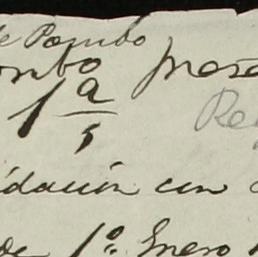 de Pombo
ombo
1ª
5
idación con
de 1º. Enero